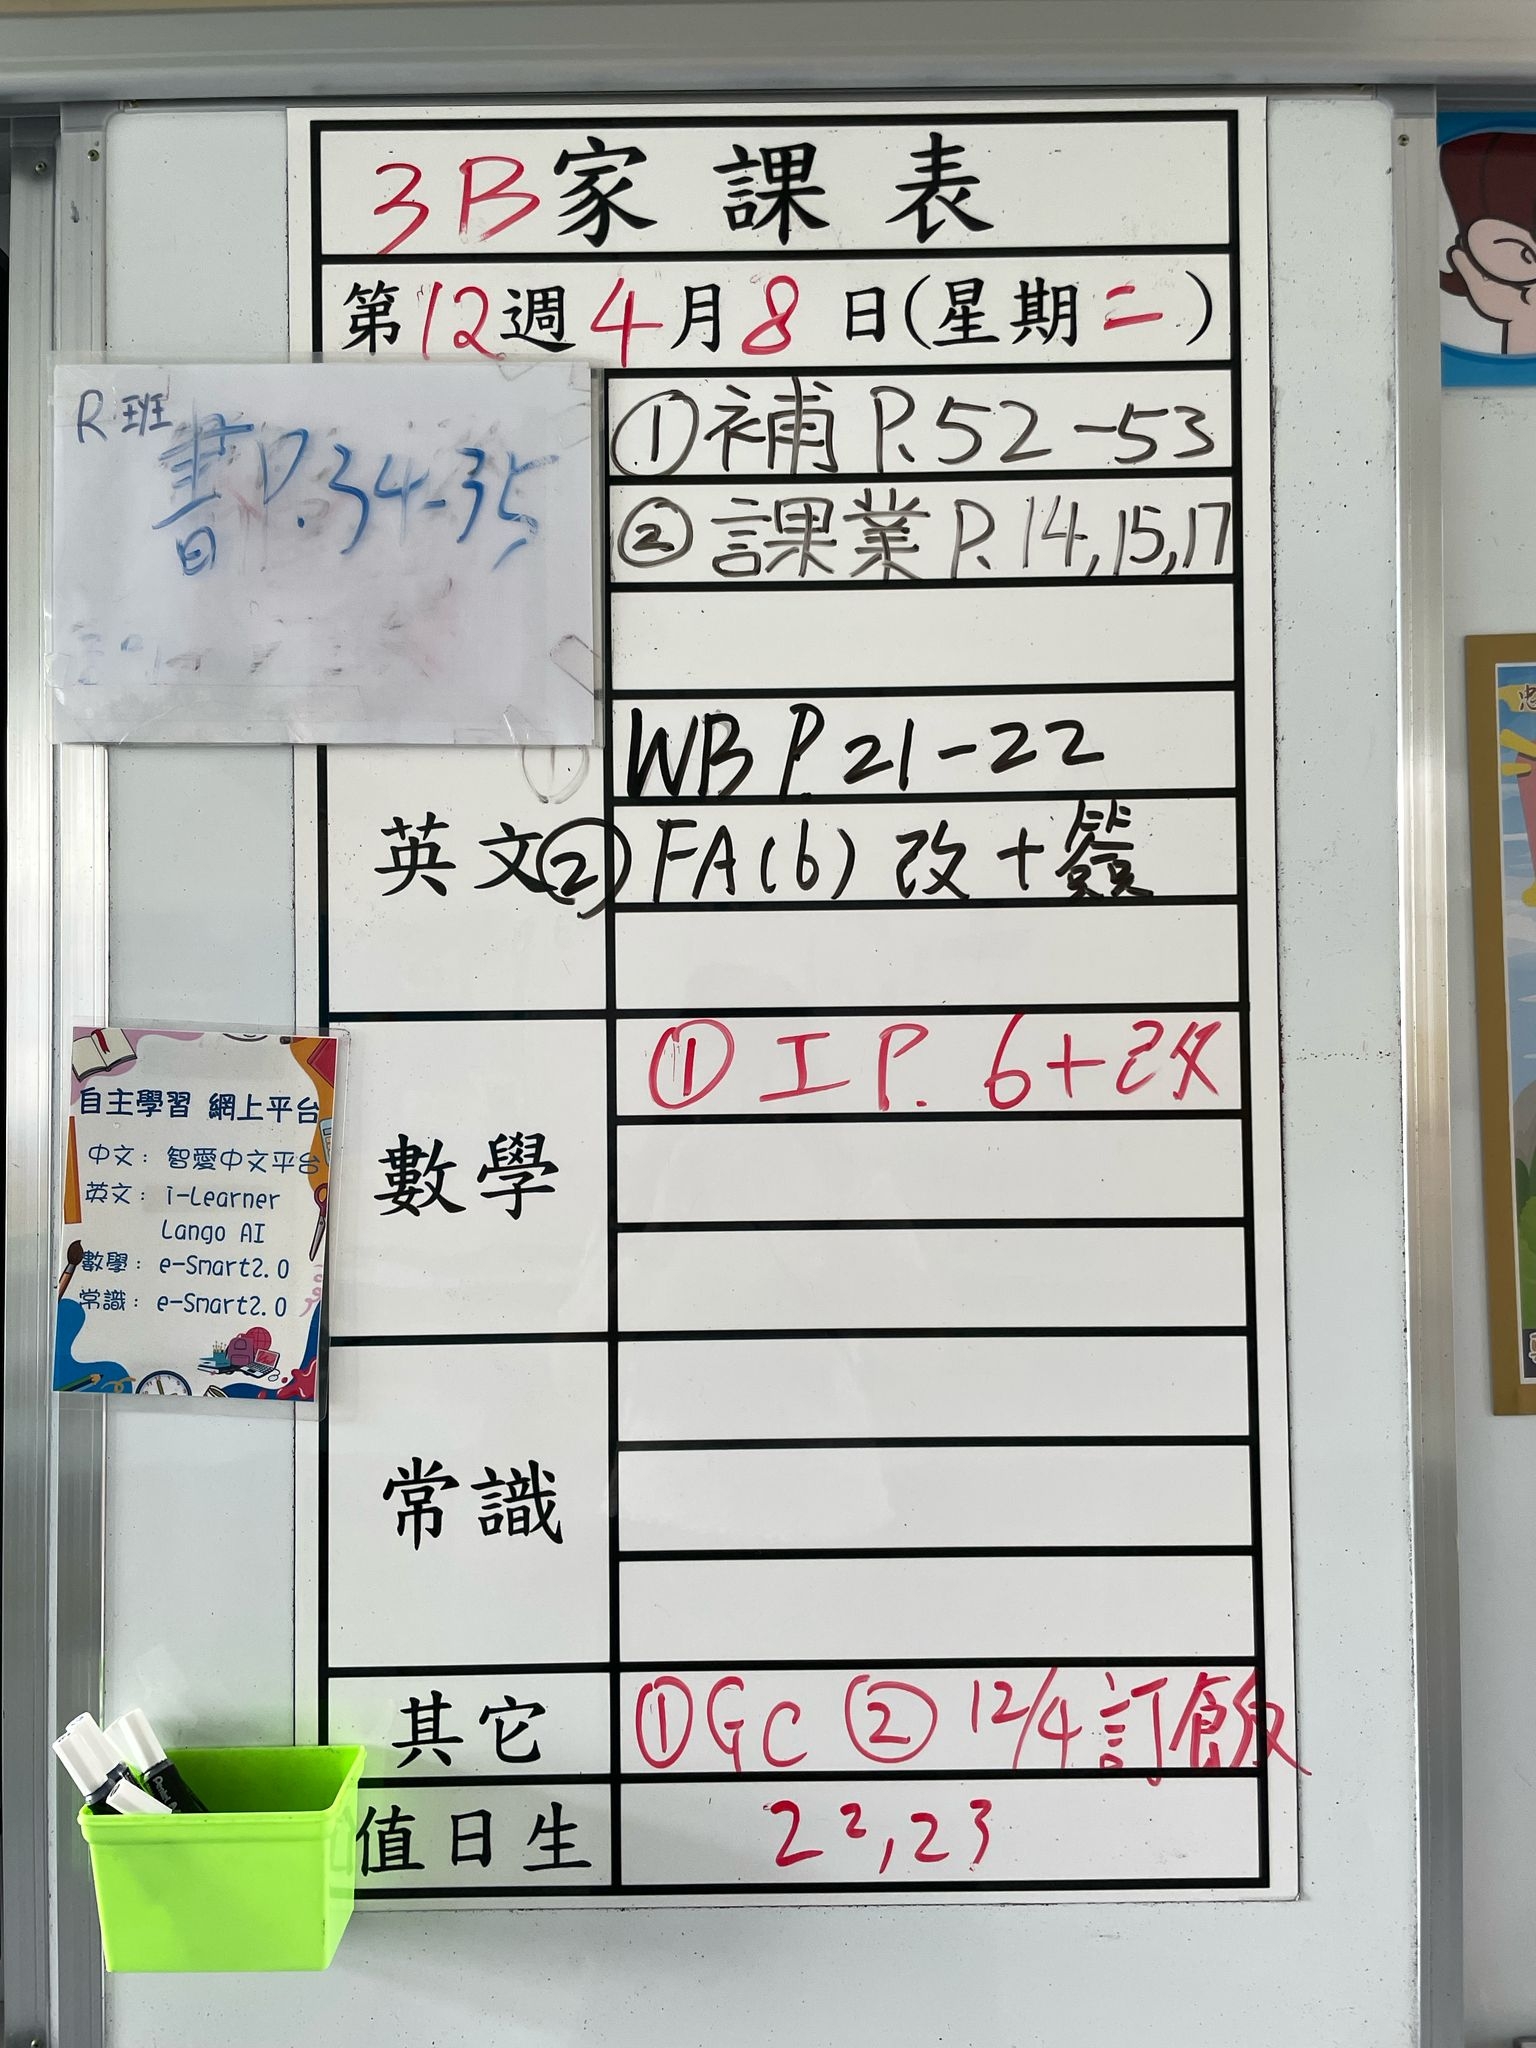 3B家課表
第12週4月8日(星期二)
R班
書P.34-35
①補 P.52-53
②課業 P.14,15,17
英文
① WB P.21-22
② FA(6) 改+簽
數學
① I P. 6+改
常識
其它
①GC ② 12/4訂飯
值日生
22,23
自主學習 網上平台
中文：智愛中文平台
英文：i-Learner
Lango AI
數學：e-Smart2.0
常識：e-Smart2.0